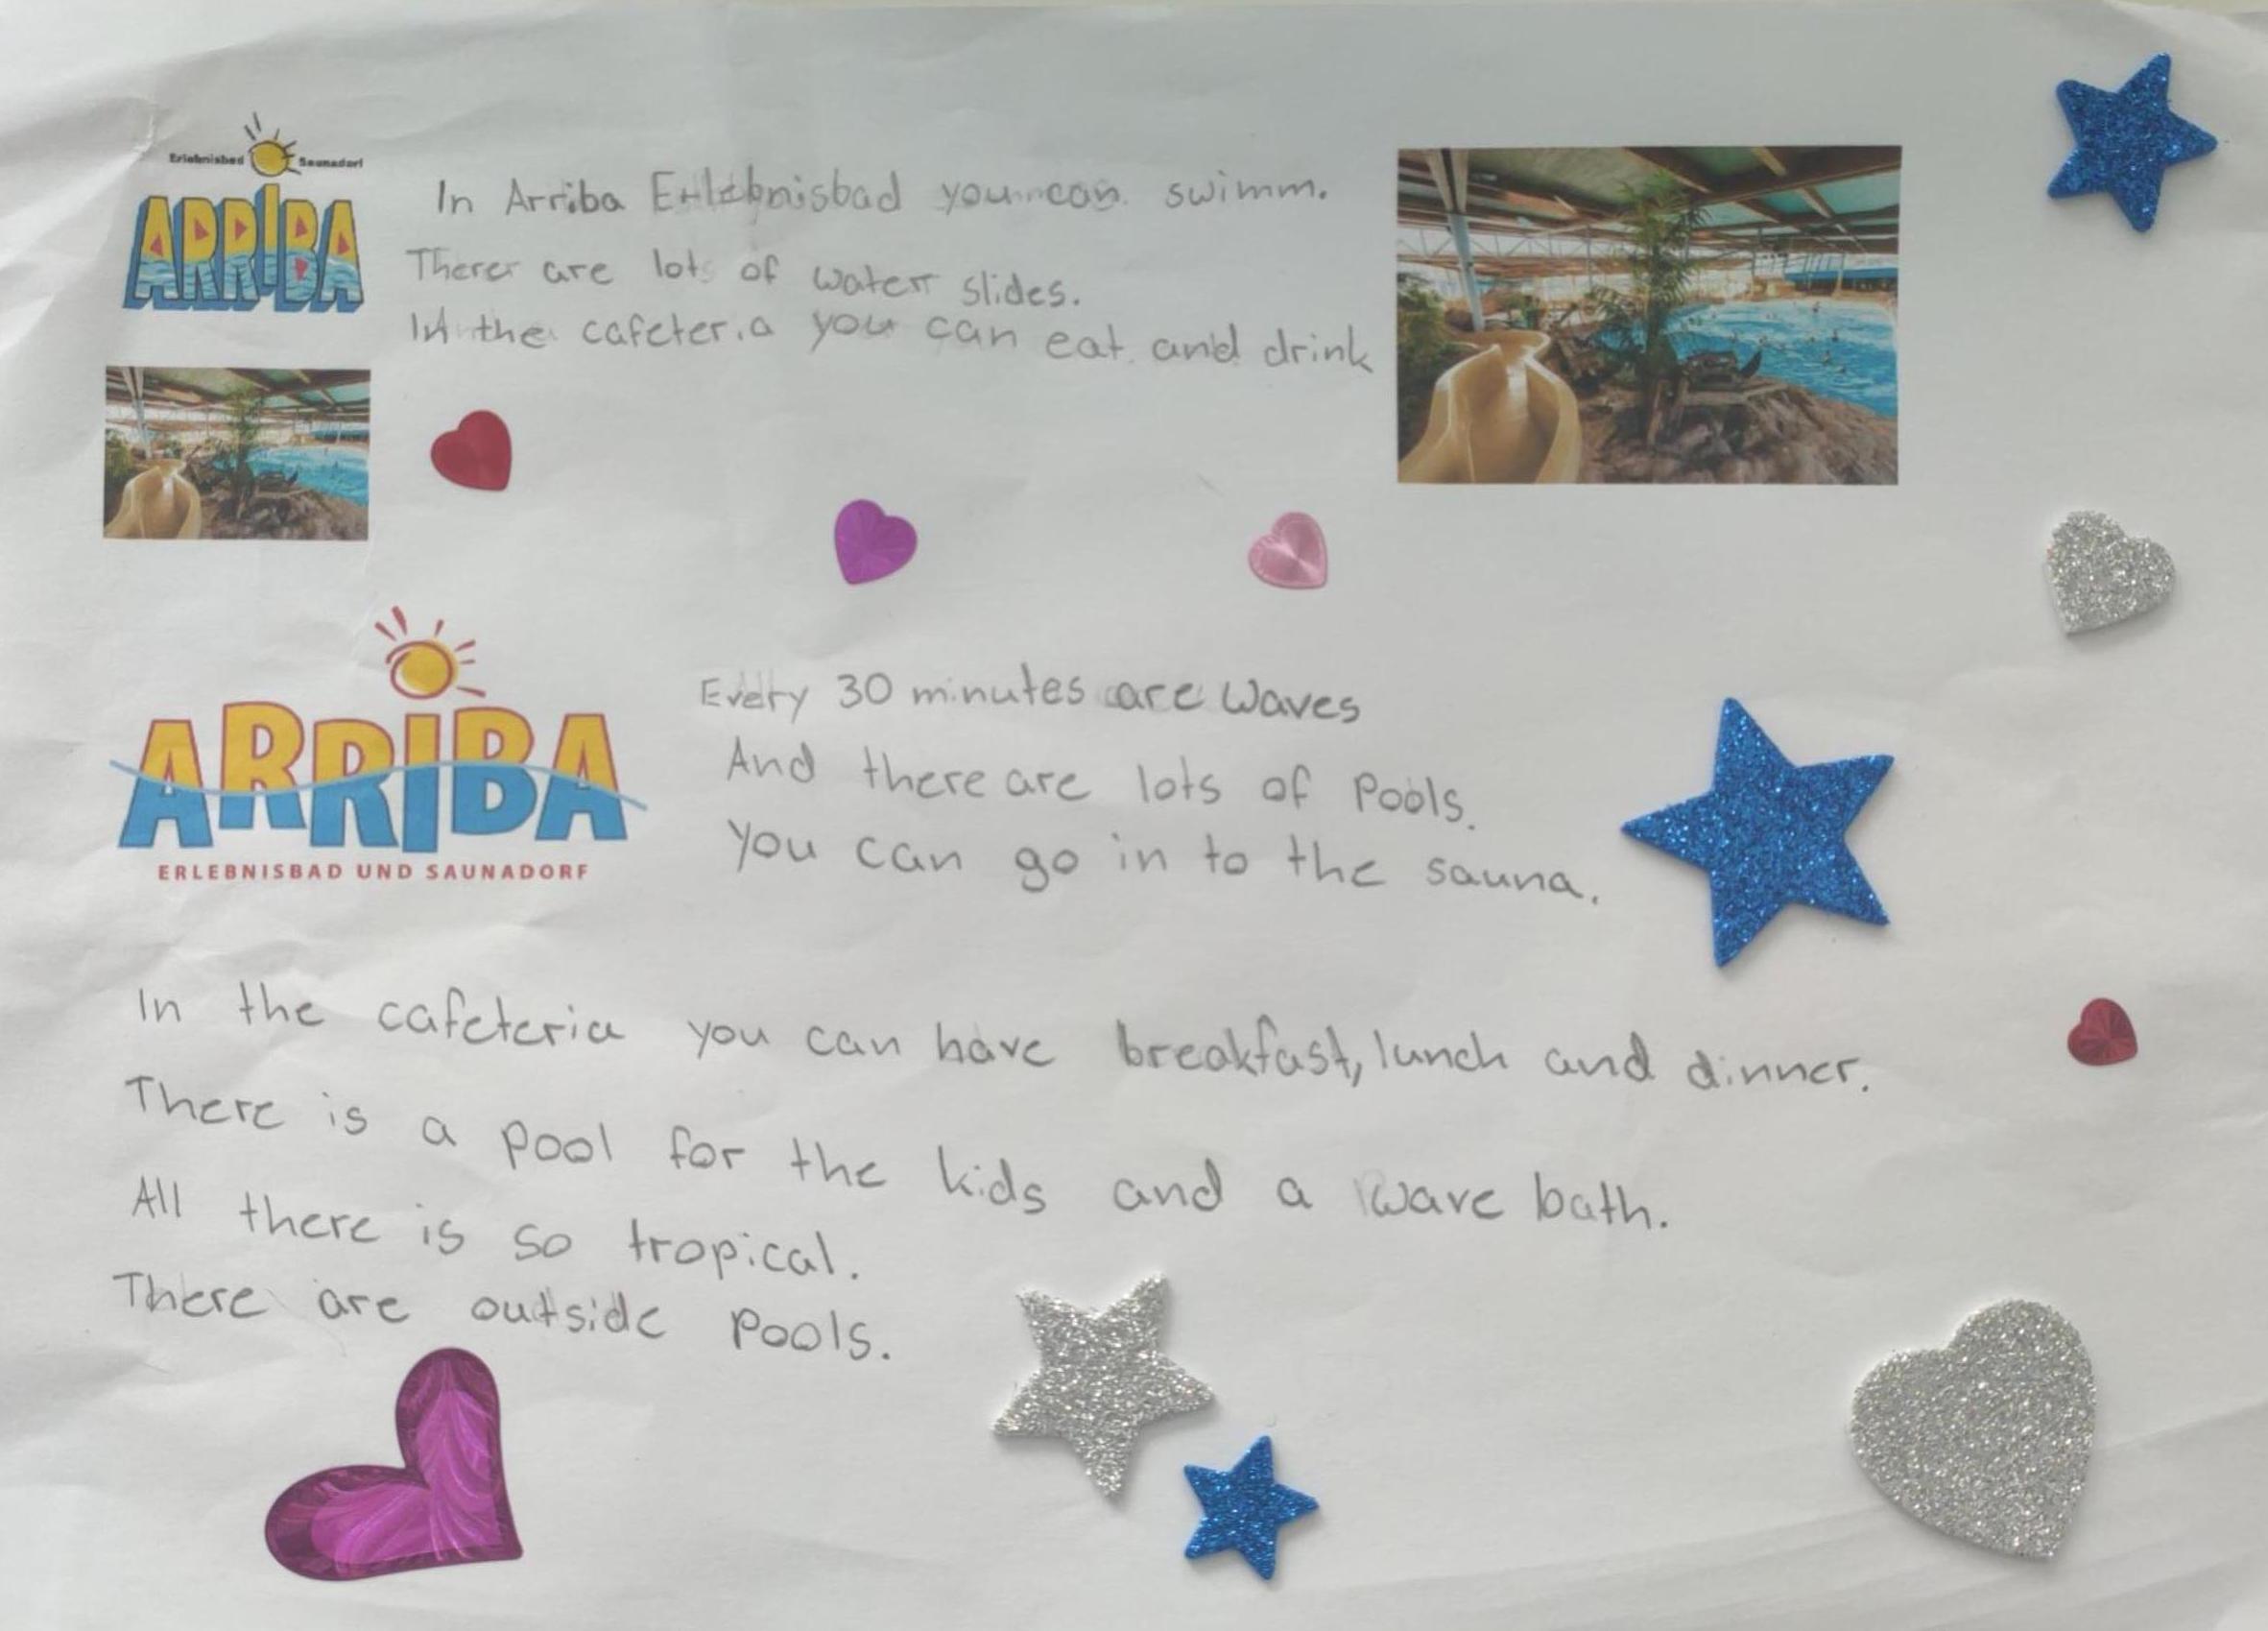 Erlebnisbad Saunadorf
ARRIBA
In Arriba Erlebnisbad you can swimm.
There are lots of water slides.
In the cafeteria you can eat and drink
ARRIBA
ERLEBNISBAD UND SAUNADORF
Every 30 minutes are waves
And there are lots of Pools.
You can go in to the sauna.
In the cafeteria you can have breakfast, lunch and dinner.
There is a pool for the kids and a wave bath.
All there is so tropical.
There are outside pools.